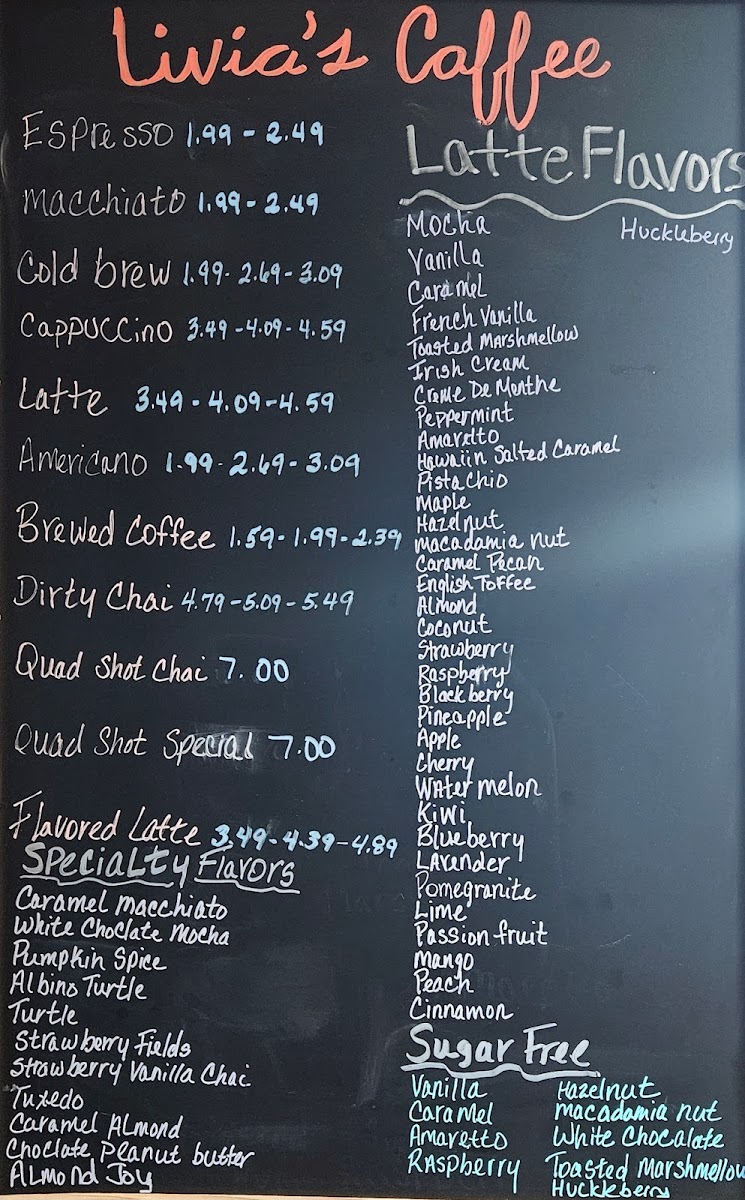 Livia's Coffee
Espresso 1.99 - 2.49
Macchiato 1.99 - 2.49
Cold brew 1.99 - 2.69 - 3.09
Cappuccino 3.49 - 4.09 - 4.59
Latte 3.49 - 4.09 - 4.59
Americano 1.99 - 2.69 - 3.09
Brewed Coffee 1.59 - 1.99 - 2.39
Dirty Chai 4.79 - 5.09 - 5.49
Quad Shot Chai 7.00
Quad Shot Special 7.00
Flavored Latte 3.49 - 4.39 - 4.89
Specialty Flavors
Caramel Macchiato
White Choclate Mocha
Pumpkin Spice
Albino Turtle
Turtle
Strawberry Fields
Strawberry Vanilla Chai
Tuxedo
Caramel Almond
Choclate Peanut butter
Almond Joy
Latte Flavors
Mocha Huckleberry
Vanilla
Caramel
French Vanilla
Toasted Marshmellow
Irish Cream
Creme De Menthe
Peppermint
Amaretto
Hawaiin Salted Caramel
Pistachio
Maple
Hazelnut
macadamia nut
Caramel Pecan
English Toffee
Almond
Coconut
Strawberry
Raspberry
Blackberry
Pineapple
Apple
Cherry
Watermelon
Kiwi
Blueberry
Lavender
Pomegranite
Lime
Passion fruit
Mango
Peach
Cinnamon
Sugar Free
Vanilla Hazelnut
Caramel macadamia nut
Amaretto White Chocalate
Raspberry Toasted Marshmellow
Huckleberry